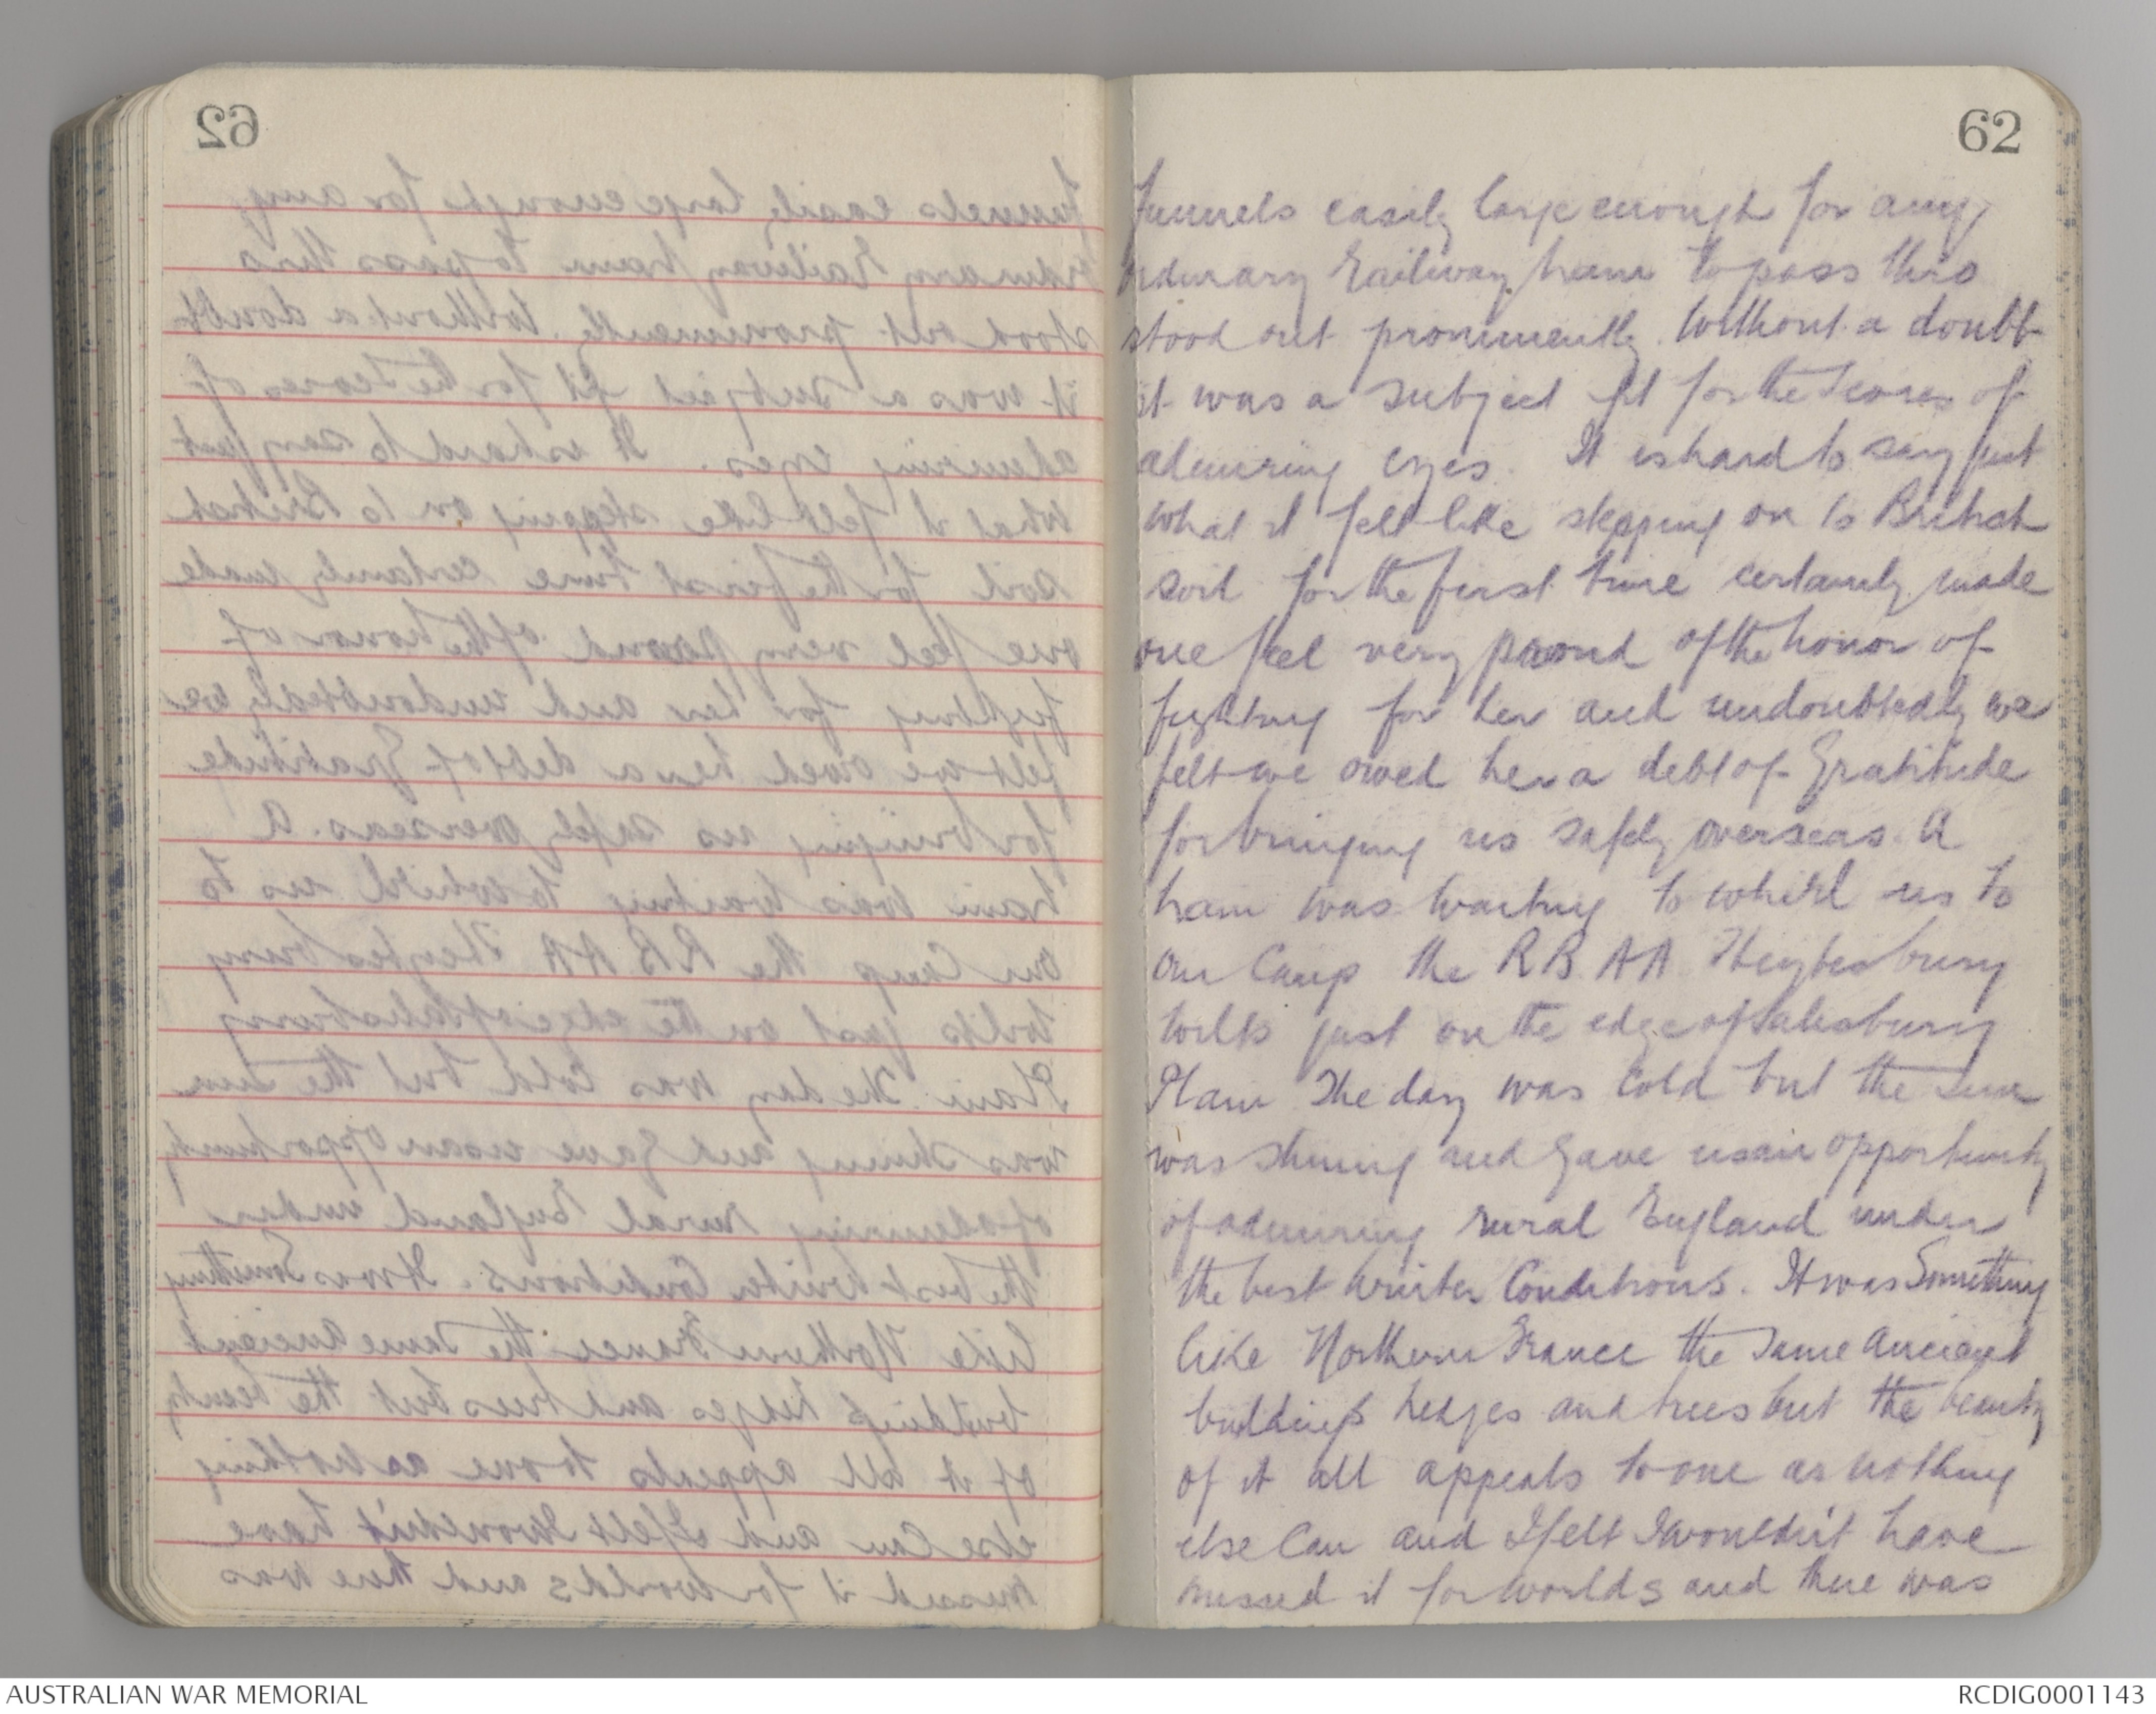 62
62
funnels easily large enough for any
ordinary Railway train to pass this
stood out prominently. Without a doubt
it was a subject fit for the scores of
admiring eyes. It is hard to say just
what it felt like stepping on to British
soil for the first time certainly made
one feel very proud of the honor of
fighting for her and undoubtedly we
felt we owed her a debt of Gratitude
for bringing us safely overseas. A
train was waiting to whirl us to
our Camp the RBAA Heytesbury
Wilts just on the edge of Salisbury
Plain. The day was Cold but the sun
was shining and gave us an opportunity
of admiring rural England under
the best winter Conditions. It was Something
like Northern France the same Ancient
buildings hedges and trees but the beauty
of it all appeals to one as nothing
else Can and I felt I wouldn't have
missed it for worlds and there was
AUSTRALIAN WAR MEMORIAL
RCDIG0001143